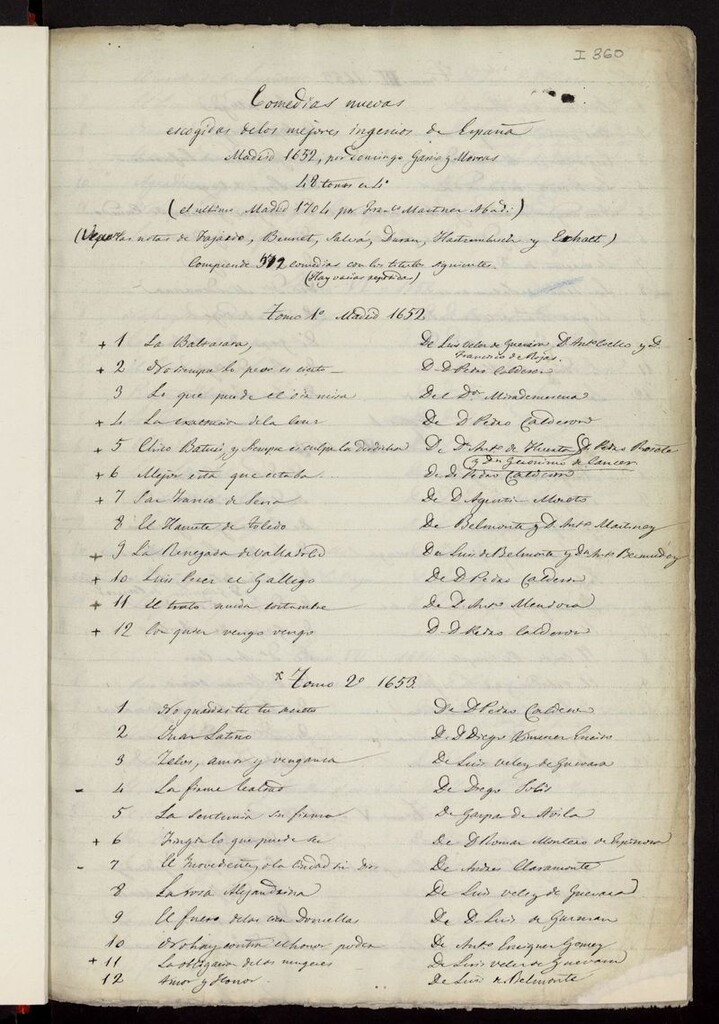 I 360
Comedias nuevas
escogidas delos mejores ingenios de España
Madrid 1652, por Domingo Garcia y Morras
48 tomos en 4º
(el ultimo Madrid 1704 por Franco Martinez Abad.)
(Vease las notas de Fajardo, Bennet, Salvá, Duran, Hartzembusch y)
Comprende comedias con los titulos siguientes.
(Hay varias repetidas)
Tomo 1º Madrid 1652
+ 1 La Baltasara, De Luis Velez de Guevara D. Antº Coello y D.
Francisco de Rojas.
+ 2 No siempre lo peor es cierto De D Pedro Calderon
3 Lo que puede el oir misa Del Dor Mirademescua
+ 4 La exaltacion dela Cruz De D Pedro Calderon
+ 5 Chico Baturi, y siempre es culpa la desdicha De Dn Antº de Huerta D. Pedro Rosete
y Dn Geronimo de Cancer
+ 6 Mejor está que estaba De D. Pedro Calderon
+ 7 San Franco de Sena De D Agustin Moreto
8 El Hamete de Toledo De Belmonte y D. Antº Martinez
+ 9 La Renegada de Valladolid De Luis de Belmonte y Dn Antº Bermudez
+ 10 Luis Perez el Gallego De D Pedro Calderon
+ 11 El trato muda costumbre De D Antº Mendoza
+ 12 Con quien vengo vengo De D Pedro Calderon
x Tomo 2º 1653.
1 No guardas tu tu secreto De D Pedro Calderon
2 Juan Latino De D Diego Ximenez Enciso
3 Zelos, amor y venganza De Luis Velez de Guevara
- 4 La firme lealtad De Diego Solis
5 La sentencia sin firma De Gaspar de Avila
+ 6 Fingir lo que puede ser De D Roman Montero de Espinosa
- 7 El Inobediente, o la Ciudad sin Dios De Andres Claramonte
8 La rosa Alejandrina De Luis Velez de Guevara
9 El fuero delas cien Doncellas De D. Luis de Guzman
10 No hay contra el honor poder De Antº Enriquez Gomez
+ 11 La obligacion delas mugeres De Luis Velez de Guevara
12 Amor y Honor De Luis de Belmonte